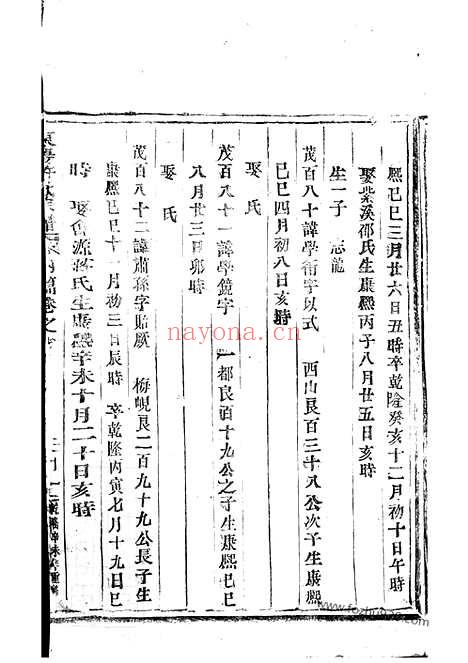 熙己巳三月廿六日丑時卒乾隆癸亥十二月初十日午時
娶紫溪邵氏生康熙丙子八月廿五日亥時
生一子 志龍
茂百八十諱學衛字以式 西山良百三十八公次子生康熙
己巳四月初八日亥時
娶 氏
茂百八十一諱學鏡字 一都良百十九公之子生康熙己巳
八月廿三日卯時
娶 氏
茂百八十二諱肅孫字貽厥 梅峴良二百九十九公長子生
康熙己巳十一月初三日辰時 卒乾隆丙寅七月十九日巳
時 娶 源蔣氏生康熙辛未十月二十日亥時
nayona.cn